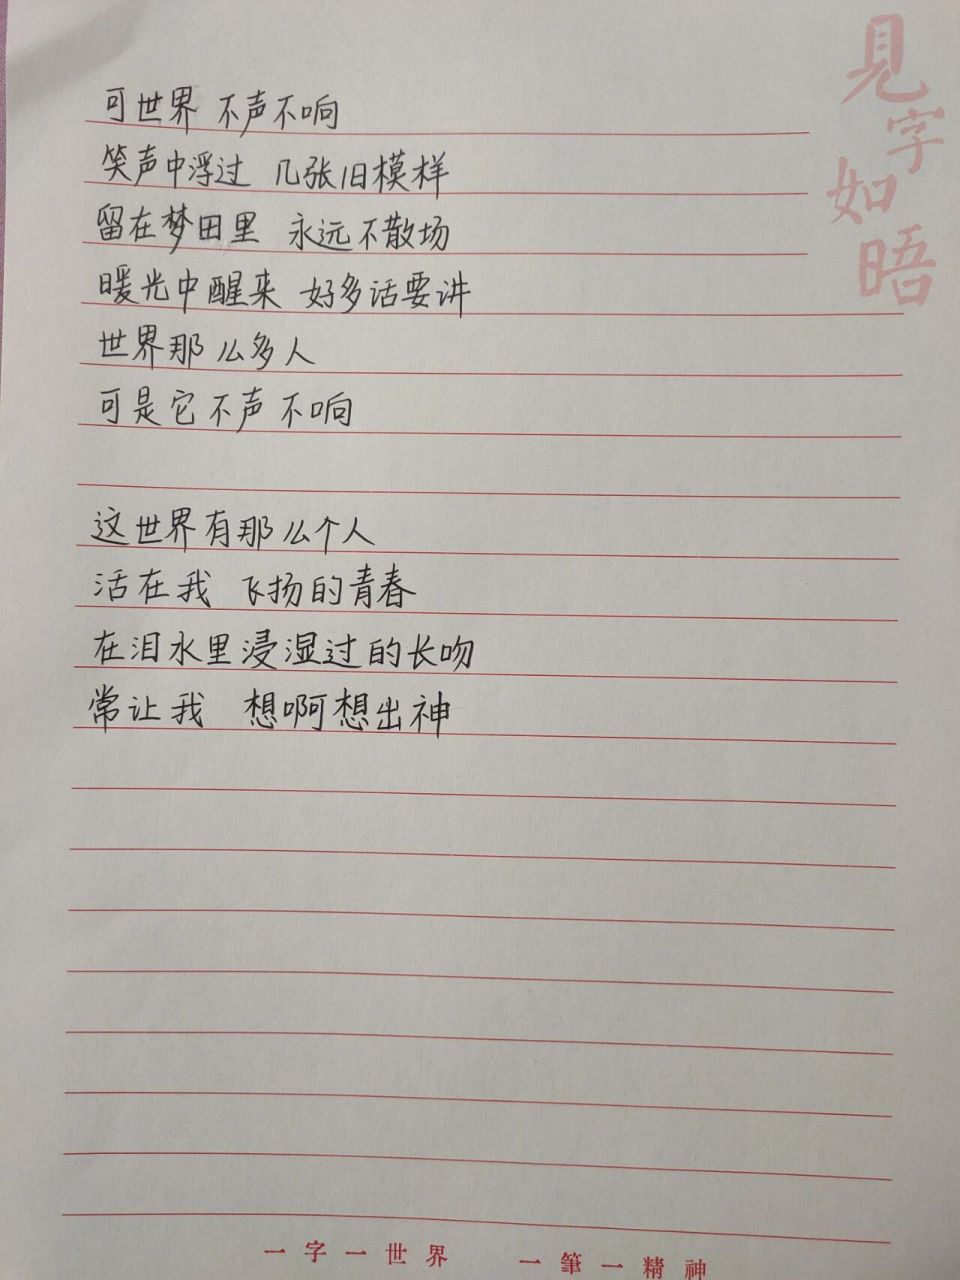 見字如晤
可世界 不声不响
笑声中浮过 几张旧模样
留在梦田里 永远不散场
暖光中醒来 好多话要讲
世界那么多人
可是它不声不响
这世界有那么个人
活在我 飞扬的青春
在泪水里浸湿过的长吻
常让我 想啊想出神
一字一世界 一筆一精神